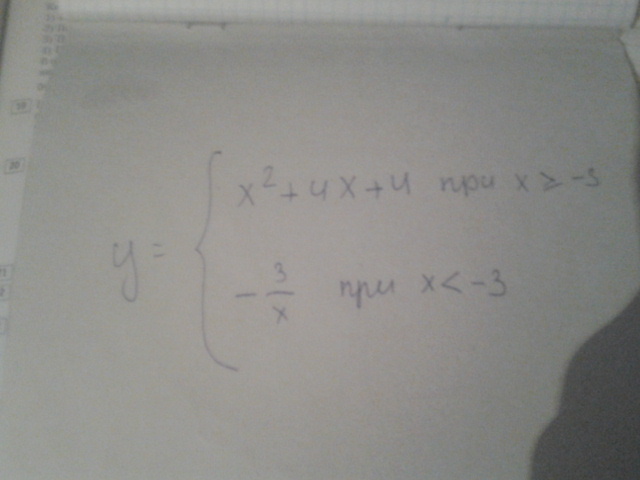 x² + 4x + 4 при x ≥ -3
y =
- 3/x при x < -3